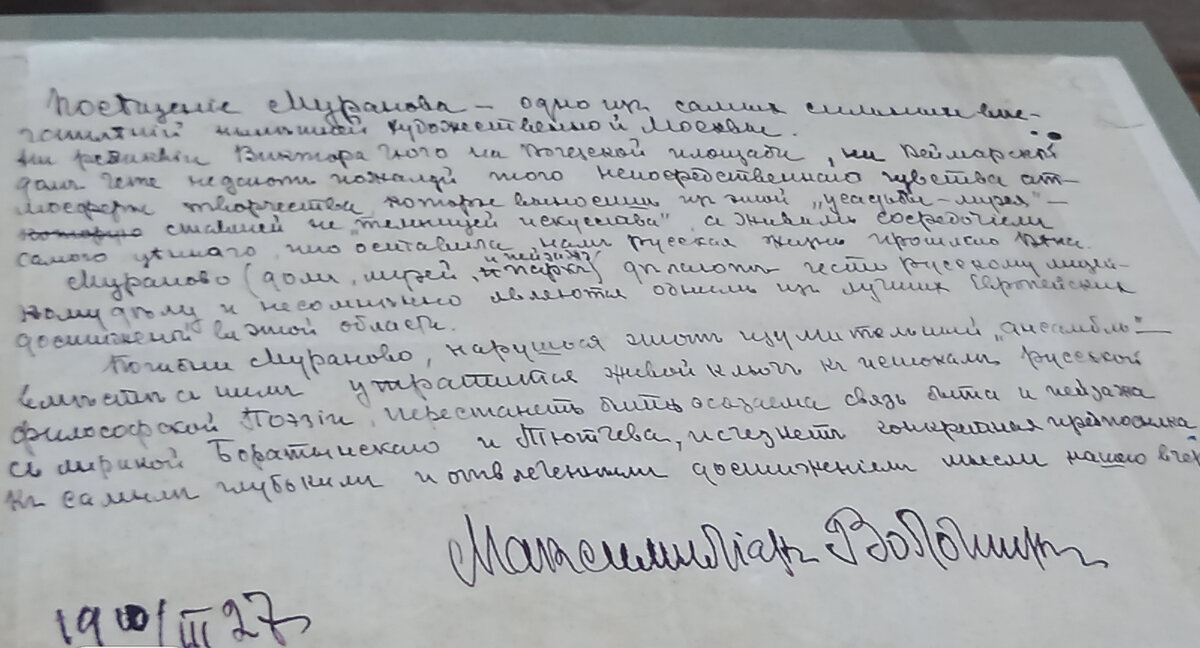 Посѣщеніе Муранова — одно изъ самых сильных впе-
чатлѣній нынѣшней художественной Москвы.
Ни реликвіи Виктора Гюго на Вогезской площади, ни Веймарской
домъ Гете не даютъ пожалуй того непосредственнаго чувства ат-
мосферы творчества которые выносишь из этой „усадьбы-музея" —
ставшей не „темницей искусства" а живымъ сосредоточіем
самого цѣннаго, что оставила намъ русская жизнь прошлаго Вѣка.
Мураново (домъ, музей, и пейзажъ парка) дѣлаютъ честь русскому музей-
ному дѣлу и несомнѣнно являются однимъ изъ лучших Европейских
достижений въ этой области.
Погибни Мураново, нарушься этотъ изумительный „ансамбль" —
вмѣстѣ с ним утратится живой ключъ къ истокамъ русской
философской Поэзіи, перестанетъ быть осязаема связь быта и пейзажа
съ лирикой Боратынскаго и Тютчева, исчезнетъ конкретная предпосылка
къ самымъ глубоким и отвлеченным достиженіям мысли нашего
Максимиліанъ Волошинъ
III 27